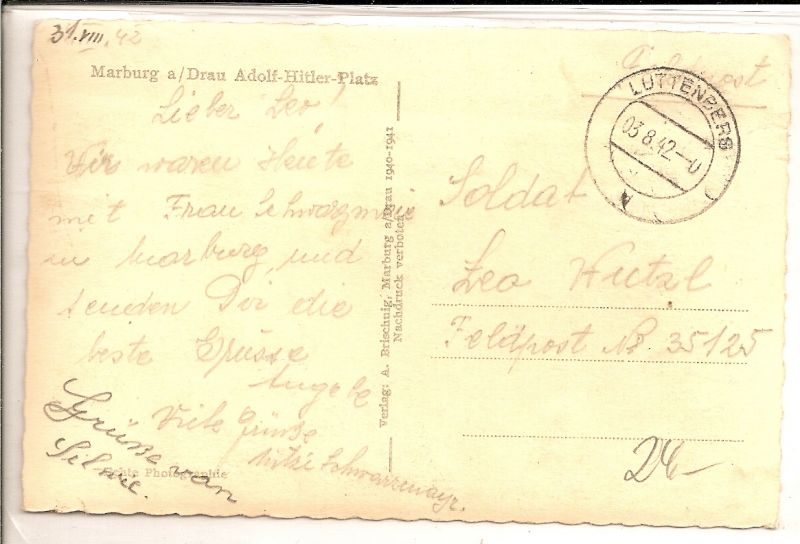 31.VIII.42
Marburg a/Drau Adolf-Hitler-Platz
Lieber Leo!
Wir waren Heute
mit Frau Schwarzmeie
in Marburg, und
senden Dir die
beste Grüsse
Angele
Viele Grüße
Mitzi Schwarzmayr.
Grüsse von
Silvie.
Echte Photographie
Verlag: A. Brieschnig, Marburg a/Drau 1940-1941
Nachdruck verboten
Feldpost
LUTTENBERG
03.8.42--0
Soldat
Leo Wutzl
Feldpost Nr. 35125
24-